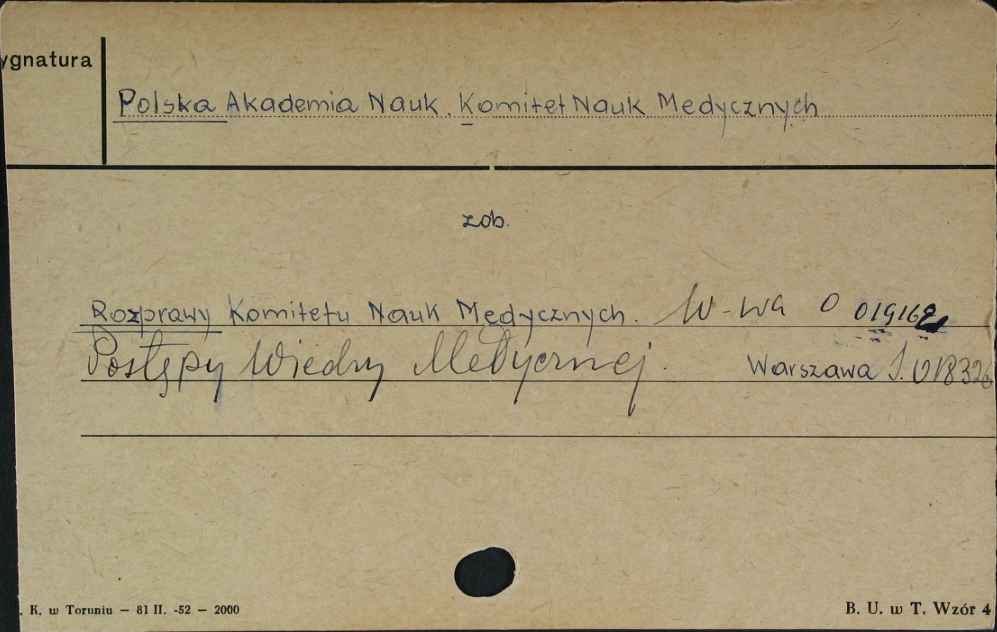 ygnatura
Polska Akademia Nauk. Komitet Nauk Medycznych
zob.
Rozprawy Komitetu Nauk Medycznych. W-wa O 019162
Postępy Wiedzy Medycznej. Warszawa J. 018326
. K. w Toruniu — 81 II. -52 — 2000
B. U. w T. Wzór 4